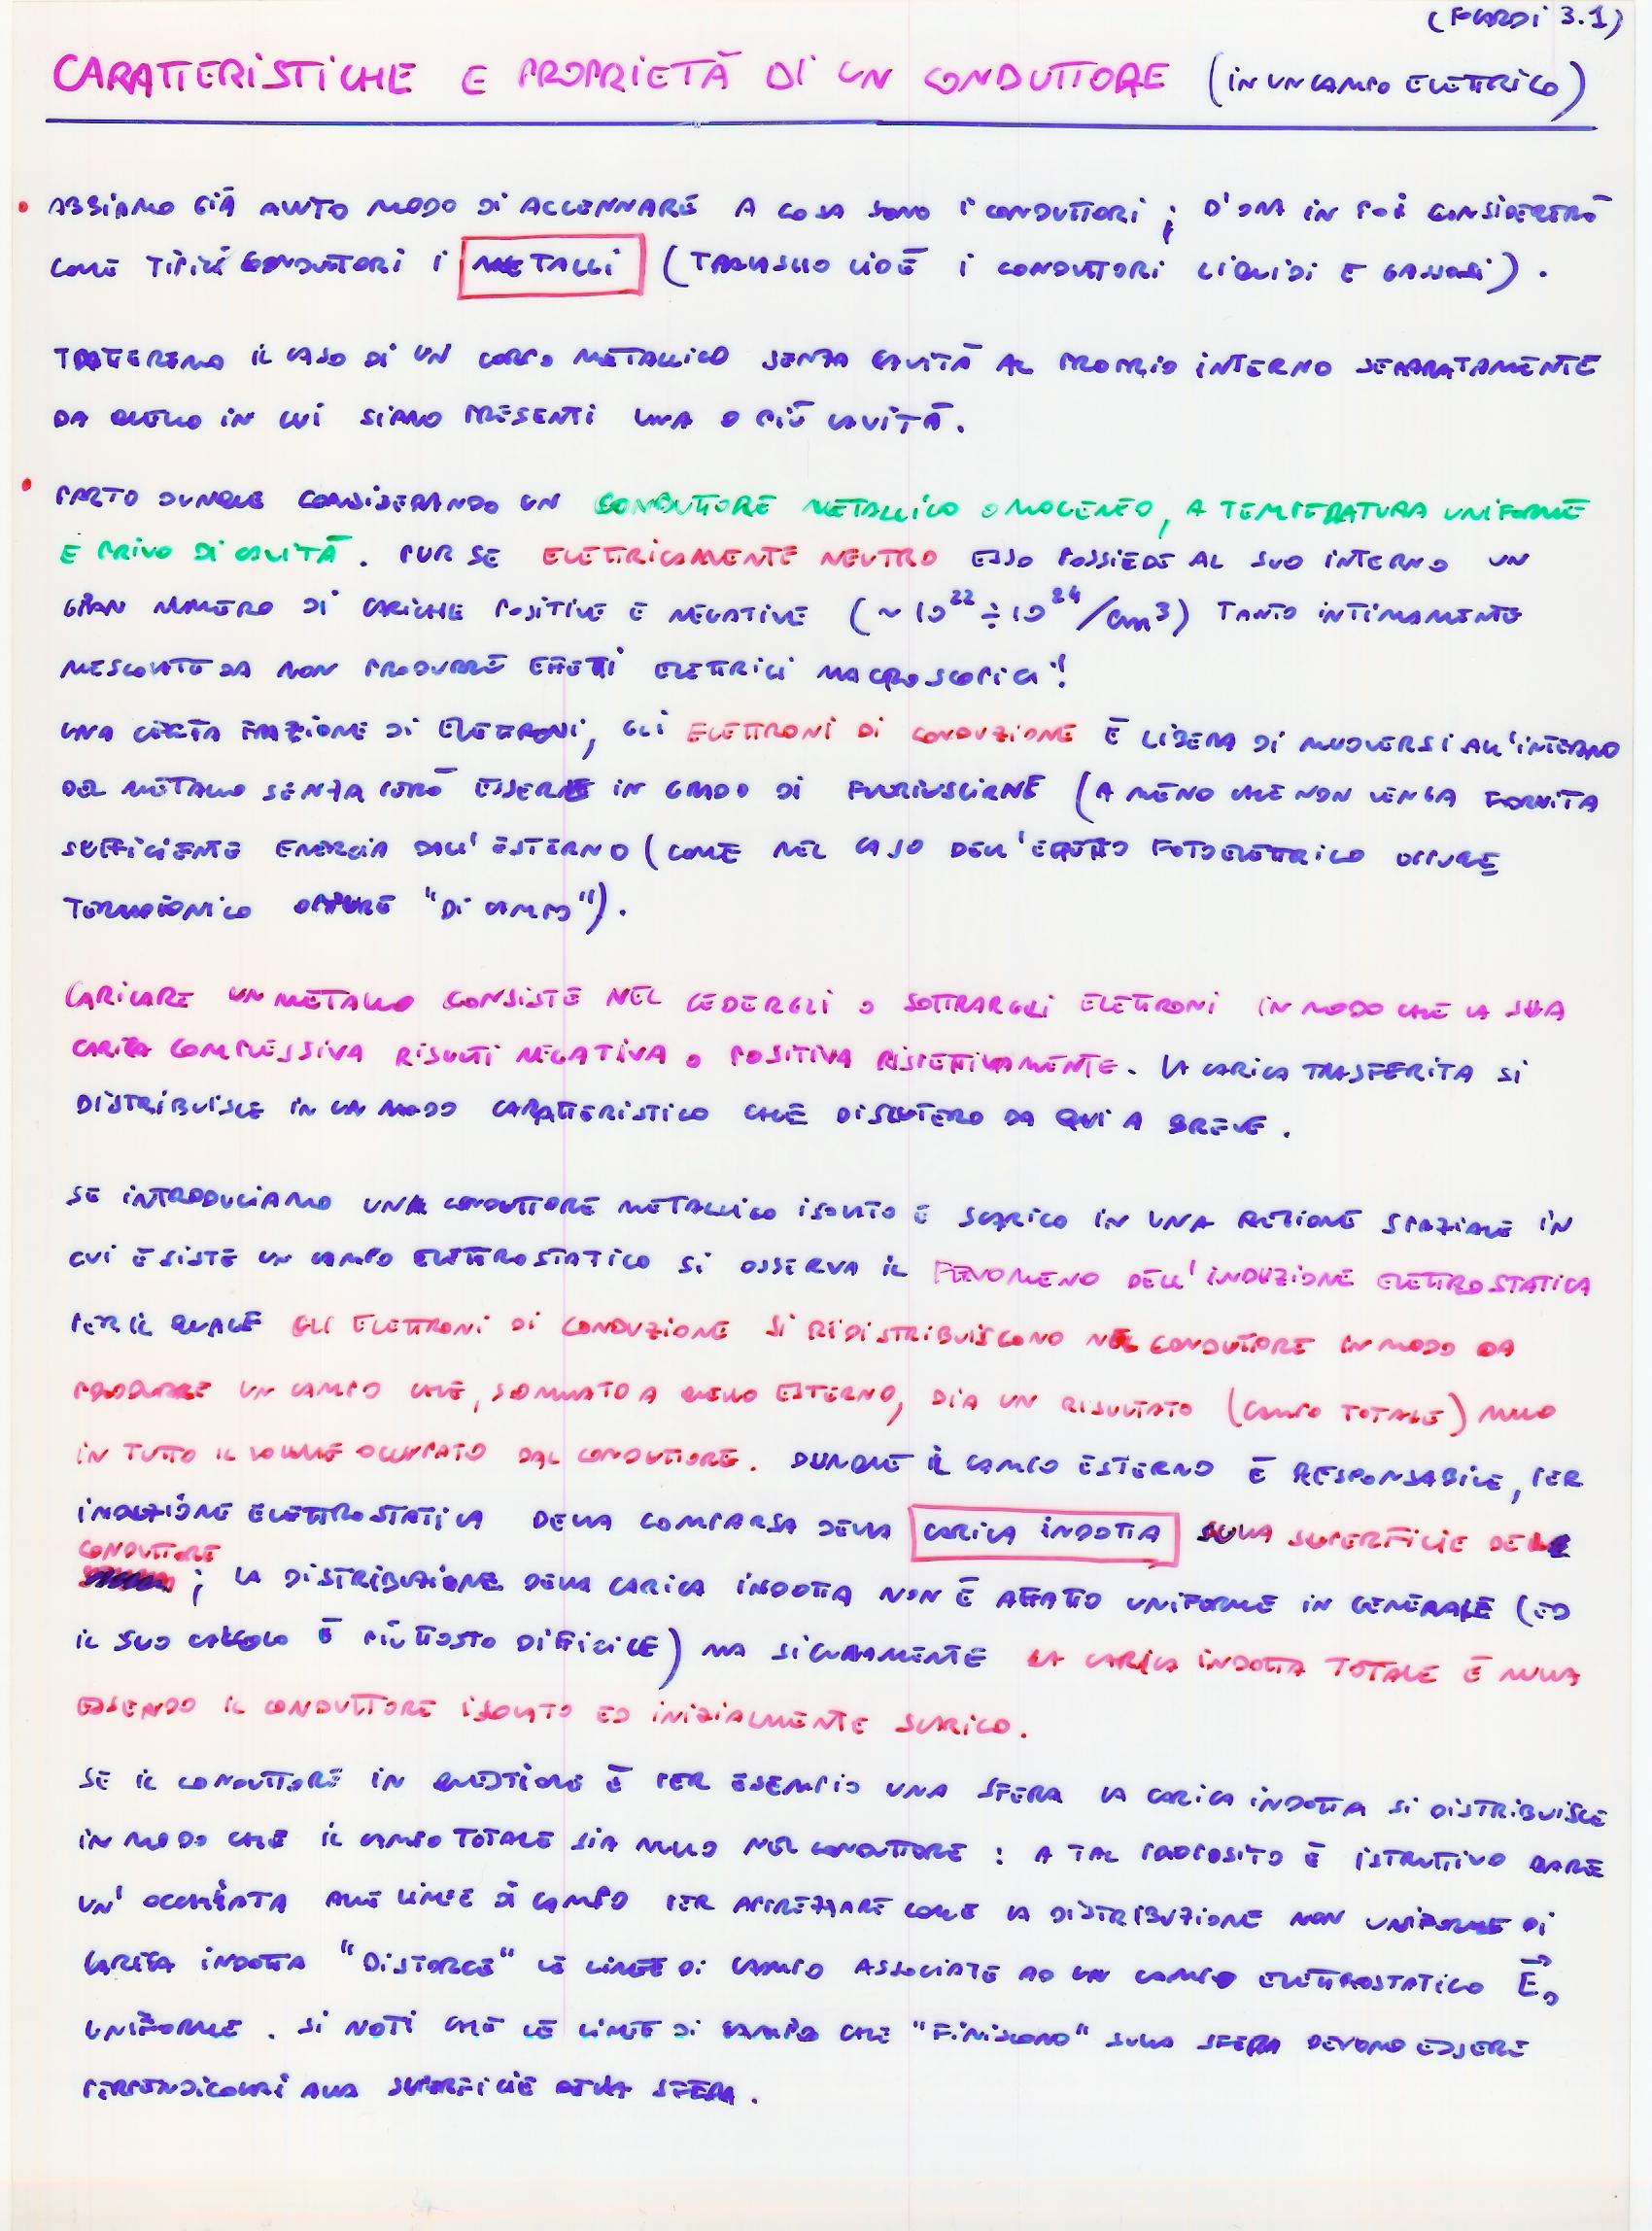 (FOARDI 3.1)
CARATTERISTICHE E PROPRIETÀ DI UN CONDUTTORE (IN UN CAMPO ELETTRICO)
• ABBIAMO GIÀ AVUTO MODO DI ACCENNARE A COSA SONO I CONDUTTORI ; D'ORA IN POI CONSIDERERÒ
COME TIPICI CONDUTTORI I METALLI (TRALASCIO CIOÈ I CONDUTTORI LIQUIDI E GASSOSI).
TRATTEREMO IL CASO DI UN CORPO METALLICO SENZA CAVITÀ AL PROPRIO INTERNO SEPARATAMENTE
DA QUELLO IN CUI SIANO PRESENTI UNA O PIÙ CAVITÀ.
• PARTO DUNQUE CONSIDERANDO UN CONDUTTORE METALLICO OMOGENEO, A TEMPERATURA UNIFORME
E PRIVO DI CAVITÀ. PUR SE ELETTRICAMENTE NEUTRO ESSO POSSIEDE AL SUO INTERNO UN
GRAN NUMERO DI CARICHE POSITIVE E NEGATIVE (~ 10²² ÷ 10²⁴/cm³) TANTO INTIMAMENTE
MESCOLATE DA NON PRODURRE EFFETTI ELETTRICI MACROSCOPICI!
UNA CERTA FRAZIONE DI ELETTRONI, GLI ELETTRONI DI CONDUZIONE È LIBERA DI MUOVERSI ALL'INTERNO
DEL METALLO SENZA PERÒ ESSERE IN GRADO DI FUORIUSCIRNE (A MENO CHE NON VENGA FORNITA
SUFFICIENTE ENERGIA DALL'ESTERNO (COME NEL CASO DELL'EFFETTO FOTOELETTRICO OPPURE
TERMOIONICO OPPURE "DI CAMPO").
CARICARE UN METALLO CONSISTE NEL CEDERGLI O SOTTRARGLI ELETTRONI IN MODO CHE LA SUA
CARICA COMPLESSIVA RISULTI NEGATIVA O POSITIVA RISPETTIVAMENTE. LA CARICA TRASFERITA SI
DISTRIBUISCE IN UN MODO CARATTERISTICO CHE DISCUTERO DA QUI A BREVE.
SE INTRODUCIAMO UN CONDUTTORE METALLICO ISOLATO E SCARICO IN UNA REGIONE SPAZIALE IN
CUI ESISTE UN CAMPO ELETTROSTATICO SI OSSERVA IL FENOMENO DELL'INDUZIONE ELETTROSTATICA
PER IL QUALE GLI ELETTRONI DI CONDUZIONE SI RIDISTRIBUISCONO NEL CONDUTTORE IN MODO DA
PRODURRE UN CAMPO CHE, SOMMATO A QUELLO ESTERNO, DIA UN RISULTATO (CAMPO TOTALE) NULLO
IN TUTTO IL VOLUME OCCUPATO DAL CONDUTTORE. DUNQUE IL CAMPO ESTERNO È RESPONSABILE, PER
INDUZIONE ELETTROSTATICA DELLA COMPARSA DELLA CARICA INDOTTA SULLA SUPERFICIE DEL
CONDUTTORE ; LA DISTRIBUZIONE DELLA CARICA INDOTTA NON È AFFATTO UNIFORME IN GENERALE (ED
IL SUO CALCOLO È PIUTTOSTO DIFFICILE) MA SICURAMENTE LA CARICA INDOTTA TOTALE È NULLA
ESSENDO IL CONDUTTORE ISOLATO ED INIZIALMENTE SCARICO.
SE IL CONDUTTORE IN QUESTIONE È PER ESEMPIO UNA SFERA LA CARICA INDOTTA SI DISTRIBUISCE
IN MODO CHE IL CAMPO TOTALE SIA NULLO NEL CONDUTTORE : A TAL PROPOSITO È ISTRUTTIVO DARE
UN'OCCHIATA ALLE LINEE DI CAMPO PER APPREZZARE COME LA DISTRIBUZIONE NON UNIFORME DI
CARICA INDOTTA "DISTORCE" LE LINEE DI CAMPO ASSOCIATE AD UN CAMPO ELETTROSTATICO E⃗₀
UNIFORME. SI NOTI CHE LE LINEE DI CAMPO CHE "FINISCONO" SULLA SFERA DEVONO ESSERE
PERPENDICOLARI ALLA SUPERFICIE DELLA SFERA.